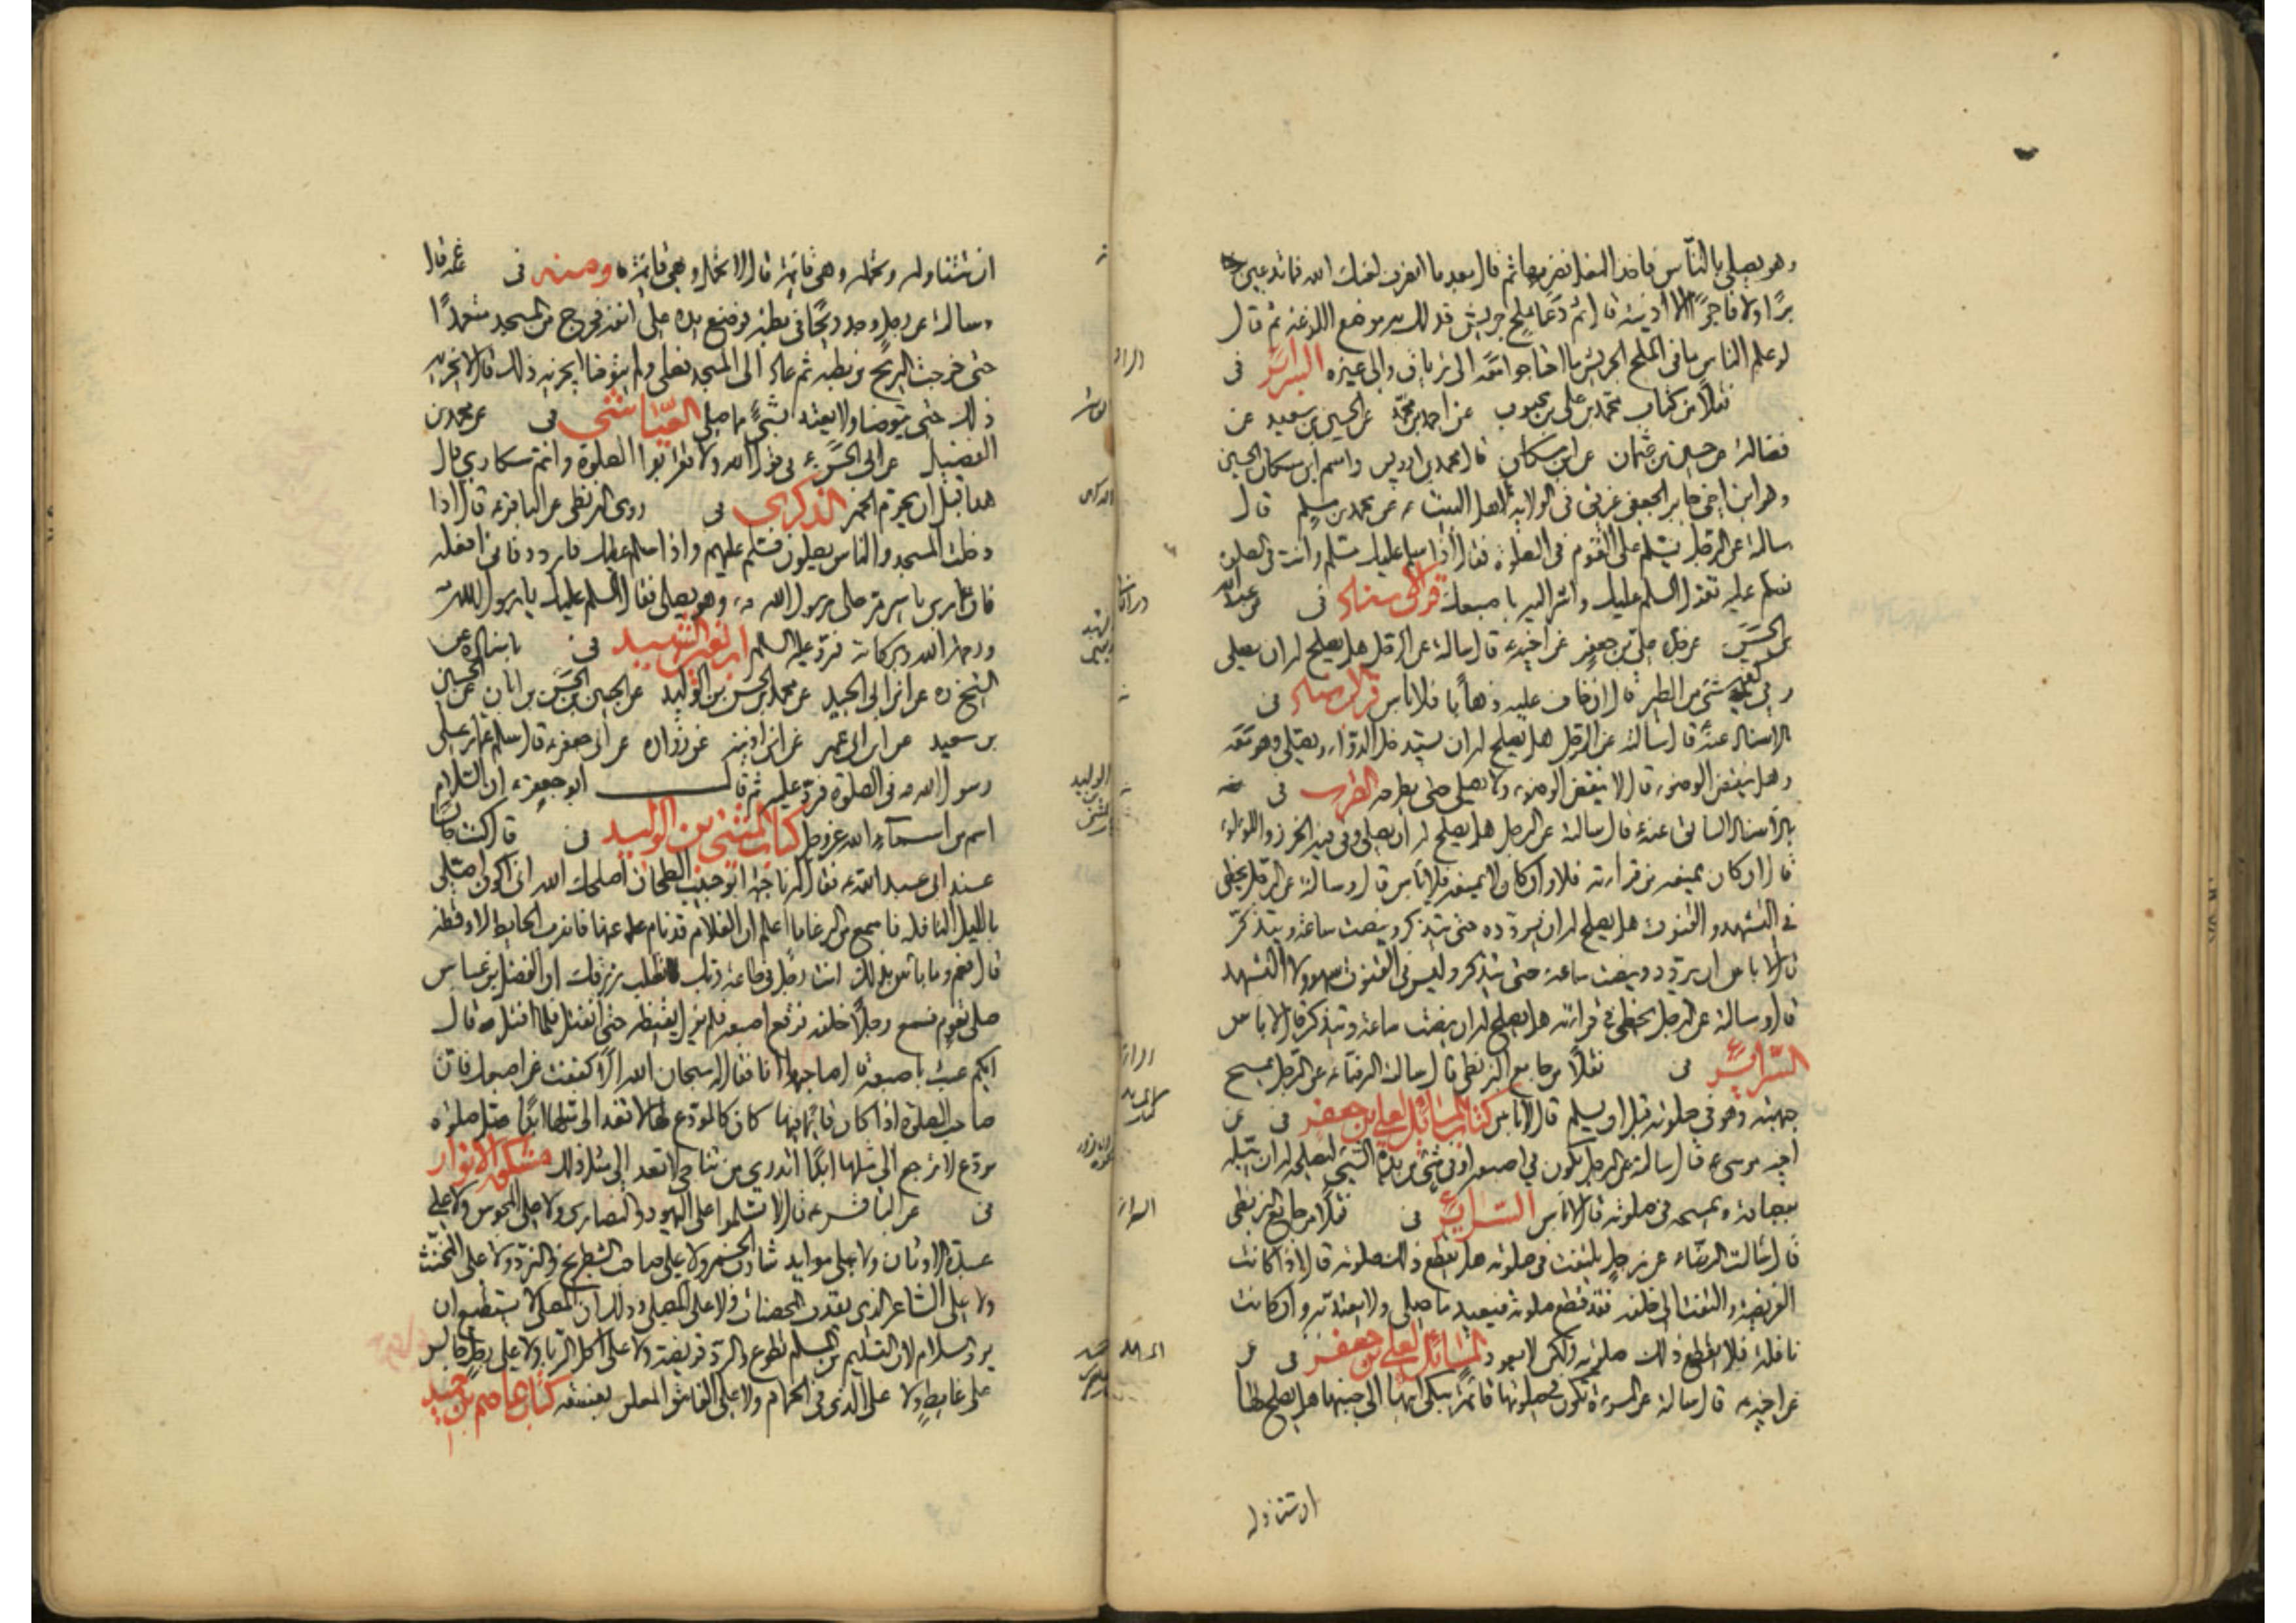 وهو يصلي بالناس فاخذ النعل فضربها ثم قال بعد ما انصرف لعنك الله فما تدعين
برا ولا فاجرا الا اذيته قال ثم دعا بملح جريش فدلك به موضع اللدغة ثم قال
لو علم الناس ما في الملح الجريش ما احتاجوا معه الى ترياق والى غيره السرائر فى
نقلا من كتاب محمد بن علي بن محبوب عن احمد بن محمد عن الحسين بن سعيد عن
فضالة عن حسين بن عثمان عن ابن مسكان قال محمد بن ادريس واسم ابن مسكان الحسين
وهو ابن اخي جابر الجعفي غريق في الولاية لاهل البيت ع عن محمد بن مسلم قال
سالته عن الرجل يسلم على القوم في الصلوة فقال اذا سلم عليك مسلم وانت في الصلوة
فسلم عليه تقول السلم عليك واشر اليه باصبعك قرب الاسناد فى عن عبد الله
بن الحسن عن جده علي بن جعفر عن اخيه ع قال سالته عن الرجل هل يصلح له ان يصلي
وفي كمه شئ من الطير قال ان خاف عليه ذهابا فلا باس قرب الاسناد فى
بالاسناد عنه قال سالته عن الرجل هل يصلح له ان يستدخل الدواء ويصلي وهو معه
وهل ينقض الوضوء قال لا ينقض الوضوء ولا يصلي حتى يطرحه القرب فى
بالاسناد السابق عنه ع قال سالته عن الرجل هل يصلح له ان يصلي وفي فيه الخرز واللؤلؤ
قال ان كان يمنعه من قراءته فلا وان كان لا يمنعه فلا باس قال وسالته عن الرجل يخطي
في التشهد والقنوت هل يصلح له ان يردده حتى يتذكر وينصت ساعة ويتذكر
قال لا باس ان يردد وينصت ساعة حتى يتذكر وليس في القنوت سهو ولا التشهد
قال وسالته عن الرجل يخطي في قراءته هل يصلح له ان ينصت ساعة ويتذكر قال لا باس
السرائر فى نقلا من جامع البزنطي قال سالت الرضا ع عن الرجل يمسح
جبهته وهو في صلوته قبل ان يسلم قال لا باس كتاب المسائل لعلي بن جعفر فى عن
اخيه موسى ع قال سالته عن الرجل يكون في اصبعه او في شئ من يده الشئ ليصلحه له ان يبله
ببصاقه ويمسحه في صلوته قال لا باس السرائر فى نقلا من جامع البزنطي
قال سالت الرضا ع عن رجل يلتفت في صلوته هل يقطع ذلك صلوته قال اذا كانت
الفريضة والتفت الى خلفه فقد قطع صلوته فيعيد ما صلى ولا يعتد به وان كانت
نافلة فلا يقطع ذلك صلوته ولكن لا يعود المسائل لعلي بن جعفر فى عن
عن اخيه ع قال سالته عن المرءة تكون في صلوتها قائمة يبكي ابنها الى جنبها هل يصلح لها
ان تتناوله
ان تتناوله وتحمله وهي قائمة قال لا تحمل وهي قائمة ومنه فى عنه قال
وسالته عن رجل وجد ريحا في بطنه فوضع يده على انفه فخرج من المسجد متعمدا
حتى خرجت الريح من بطنه ثم عاد الى المسجد فصلى ولم يتوضا ايجزيه ذلك قال لا يجزيه
ذلك حتى يتوضا ولا يعتد بشئ مما صلى العياشي فى عن محمد بن
الفضيل عن ابى الحسن ع في قول الله ولا تقربوا الصلوة وانتم سكارى قال
هذا قبل ان يحرم الخمر الذكرى فى روى البزنطي عن الباقر ع قال اذا
دخلت المسجد والناس يصلون فسلم عليهم واذا سلم عليك فاردد فاني افعله
فان عمار بن ياسر مر على رسول الله ص وهو يصلي فقال السلم عليك يا رسول الله
ورحمة الله وبركاته فرد عليه السلم اربعين الشهيد فى باسناده عن
الشيخ ره عن ابن ابى الجيد عن محمد بن الحسن بن الوليد عن الحسين بن الحسن بن ابان عن الحسين
بن سعيد عن ابن ابى عمير عن ابن اذينة عن زرارة عن ابى جعفر ع قال سلم عمار على
رسول الله ص في الصلوة فرد عليه ثم قال ابو جعفر ع ان السلام
اسم من اسماء الله عز وجل كتاب المثنى بن الوليد فى قال كنت جالسا
عند ابى عبد الله ع فقال له ناجية ابو حبيب الطحان اصلحك الله اني اكون اصلي
بالليل النافلة فاسمع من الرحا ما اعلم ان الغلام قد نام عنها فاضرب الحايط لاوقظه
قال نعم وما باس بذلك انت رجل في طاعة ربك تطلب رزقك ان الفضل بن عباس
صلى بقوم فسمع رجلا خلفه فرقع اصبعه فلم يزل يغيظه حتى انفتل فلما انفتل قال
ايكم عبث باصبعه قال صاحبها انا فقال له سبحان الله الا كففت عن اصبعك فان
صاحب الصلوة اذا كان قائما فيها كان كالمودع لها لا تعد الى مثلها ابدا صل صلوة
مودع لا ترجع الى مثلها ابدا اتدري من تناجي لا تعد الى مثل ذلك مشكوة الانوار
فى عن الباقر ع قال لا تسلموا على اليهود والنصارى ولا على المجوس ولا على
عبدة الاوثان ولا على موايد شارب الخمر ولا على صاحب الشطرنج والنرد ولا على المخنث
ولا على الشاعر الذي يقذف المحصنات ولا على المصلي وذلك ان المصلي لا يستطيع ان
يرد السلام لان التسليم من المسلم تطوع والرد فريضة ولا على اكل الربا ولا على رجل جالس
على غايط ولا على الذي في الحمام ولا على الفاسق المعلن بفسقه كتاب عاصم بن حميد